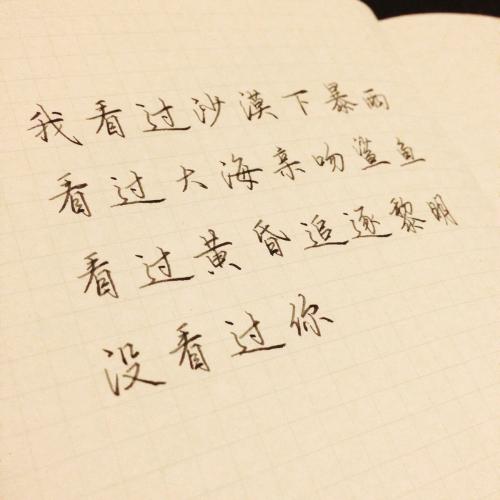 我看过沙漠下暴雨
看过大海亲吻鲨鱼
看过黄昏追逐黎明
没看过你